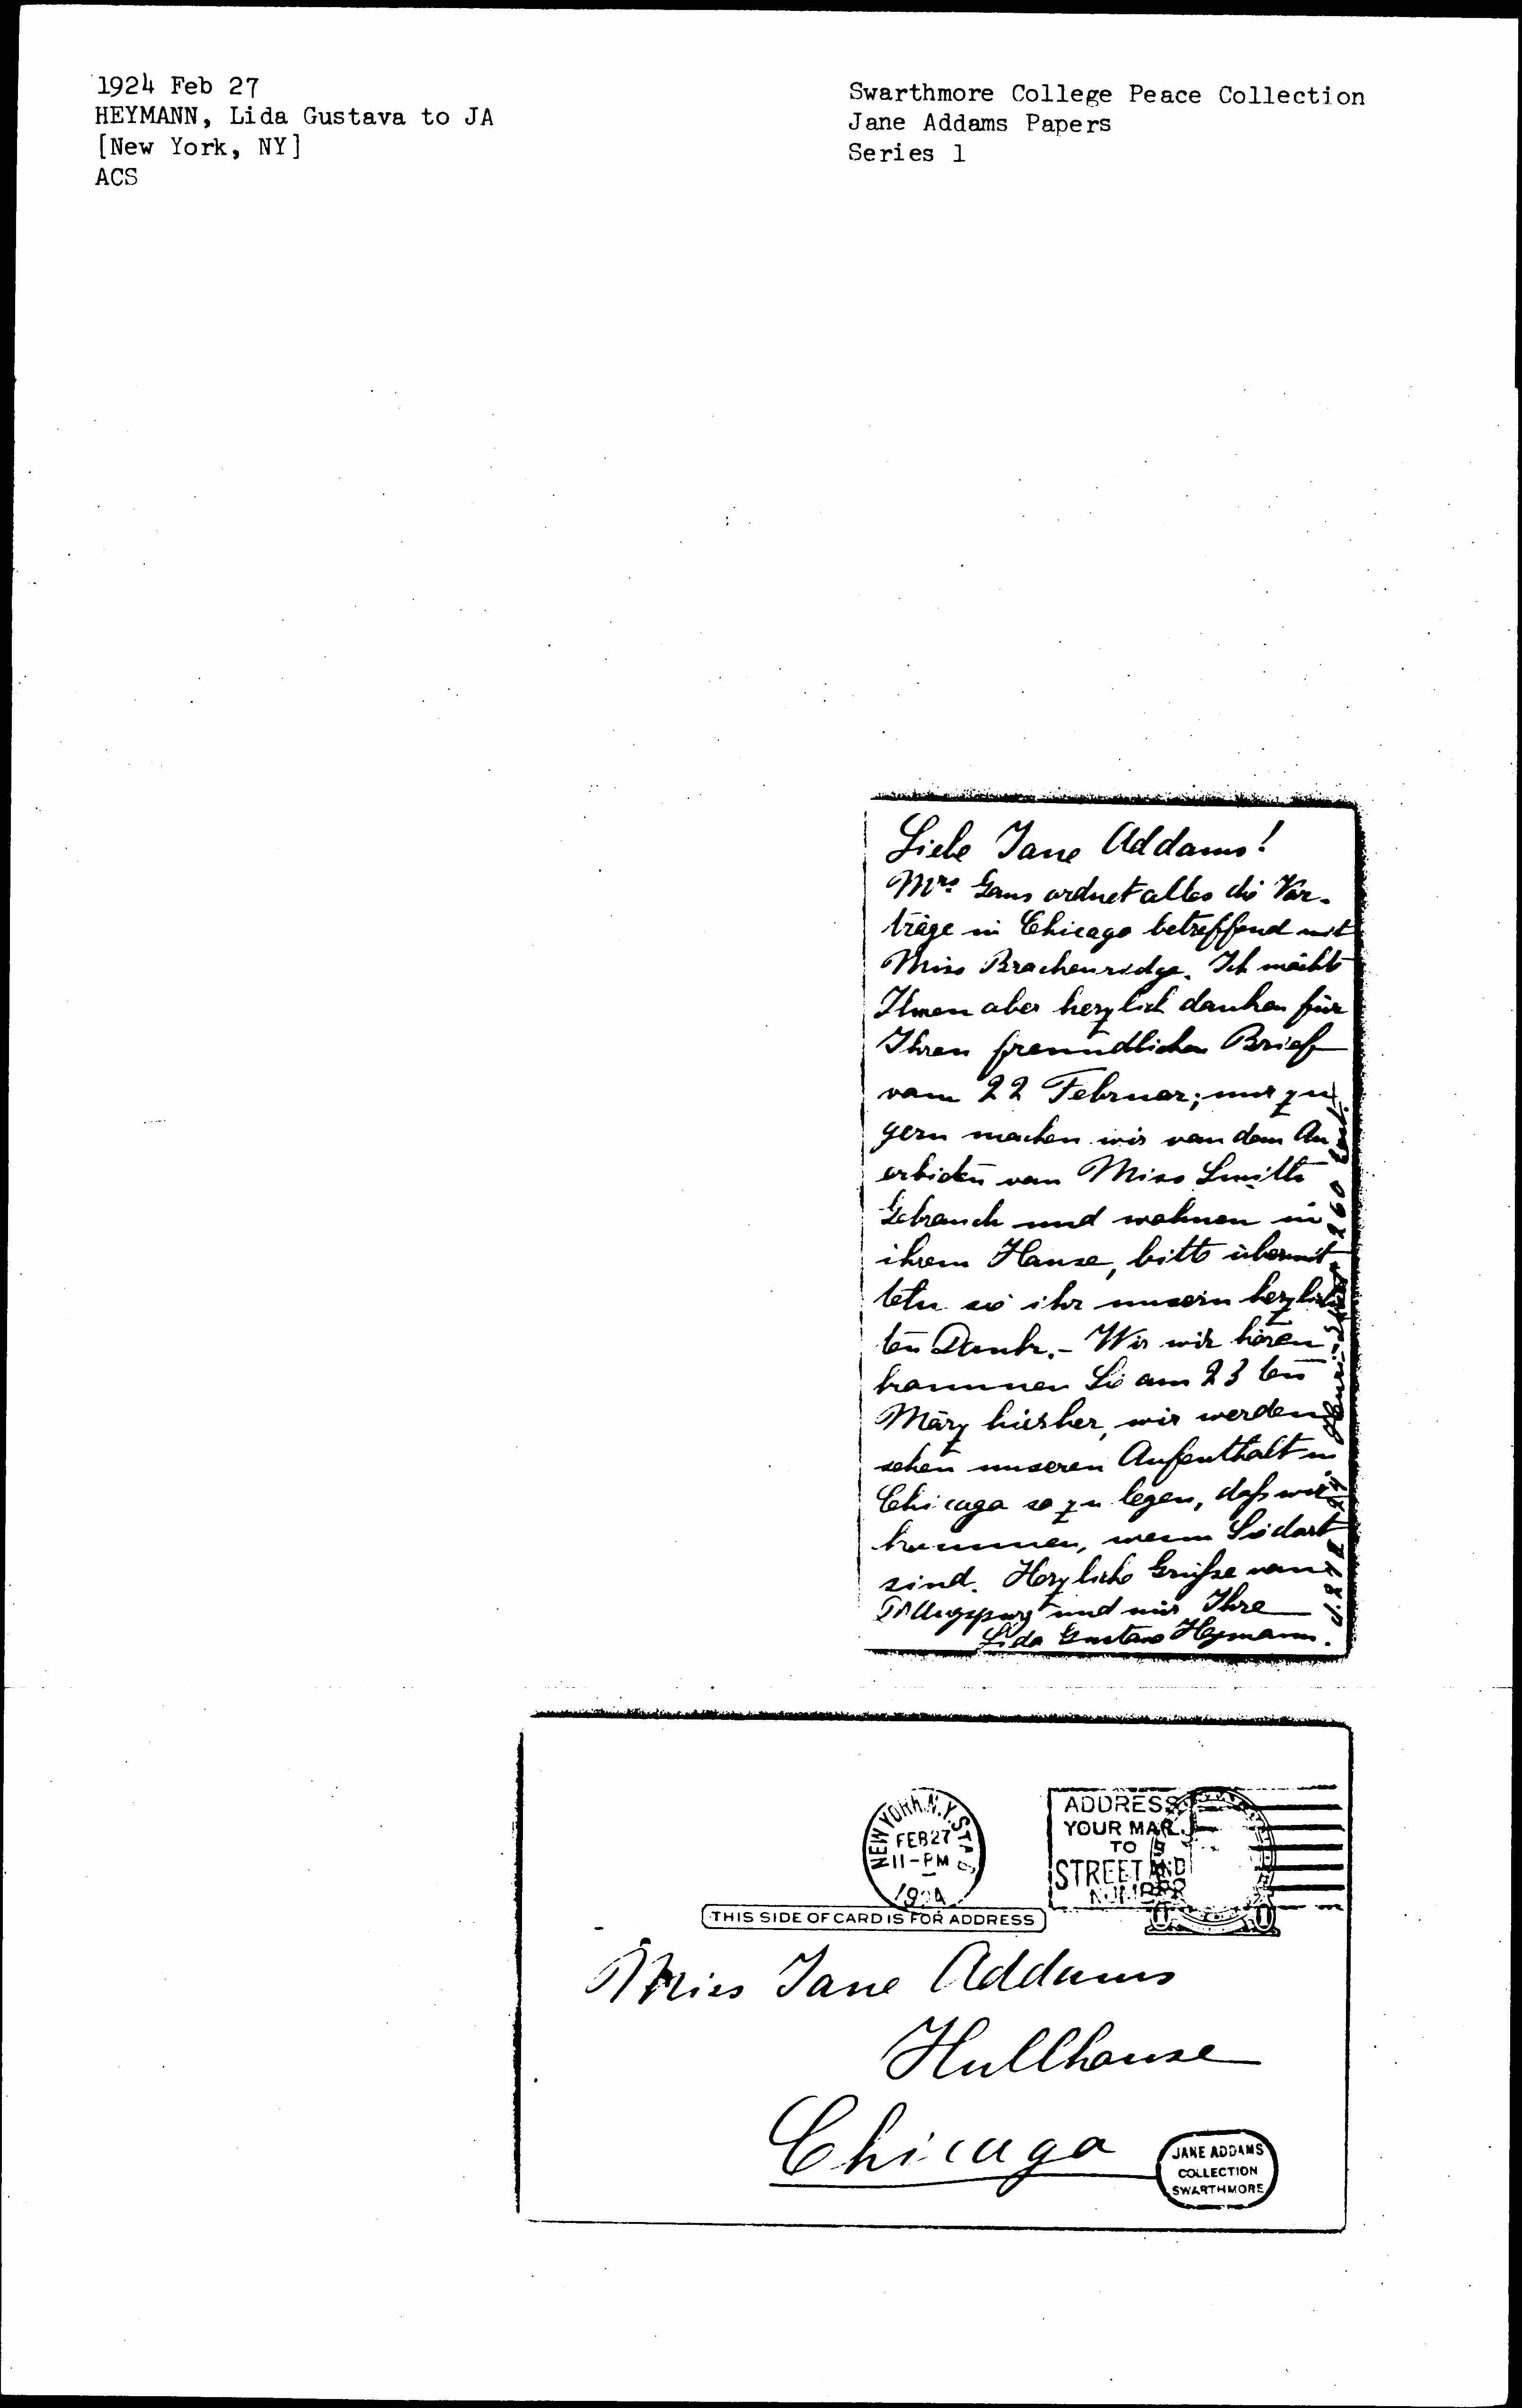 1924 Feb 27
HEYMANN, Lida Gustava to JA
[New York, NY]
ACS
Swarthmore College Peace Collection
Jane Addams Papers
Series 1
Liebe Jane Addams!
Mrs Gans ordnet alles die Vor-
träge in Chicago betreffend mit
Miss Brachenridge. Ich möchte
Ihnen aber herzlich danken für
Ihren freundlichen Brief
vom 22 Februar; nur zu
gern machen wir von dem An
erbieten von Miss Smith
Gebrauch und wohnen in
ihrem Hause, bitte übermit
teln sie ihr unsern herzlichs
ten Dank.- Wie wir hören
kommen Sie am 23 ten
März hierher, wir werden
sehen unseren Aufenthalt in
Chicago so zu legen, daß wir
kommen, wenn Sie dort
sind. Herzliche Grüße von
Augspurg und mir Ihre
Lida Gustava Heymann.
d. 27 II 24 260 East.
NEW YORK, N.Y. STA
FEB 27
11-PM
1924
ADDRESS
YOUR MAIL
TO
STREET AND
NUMBER
THIS SIDE OF CARD IS FOR ADDRESS
Miss Jane Addams
Hullhouse
Chicago
JANE ADDAMS
COLLECTION
SWARTHMORE